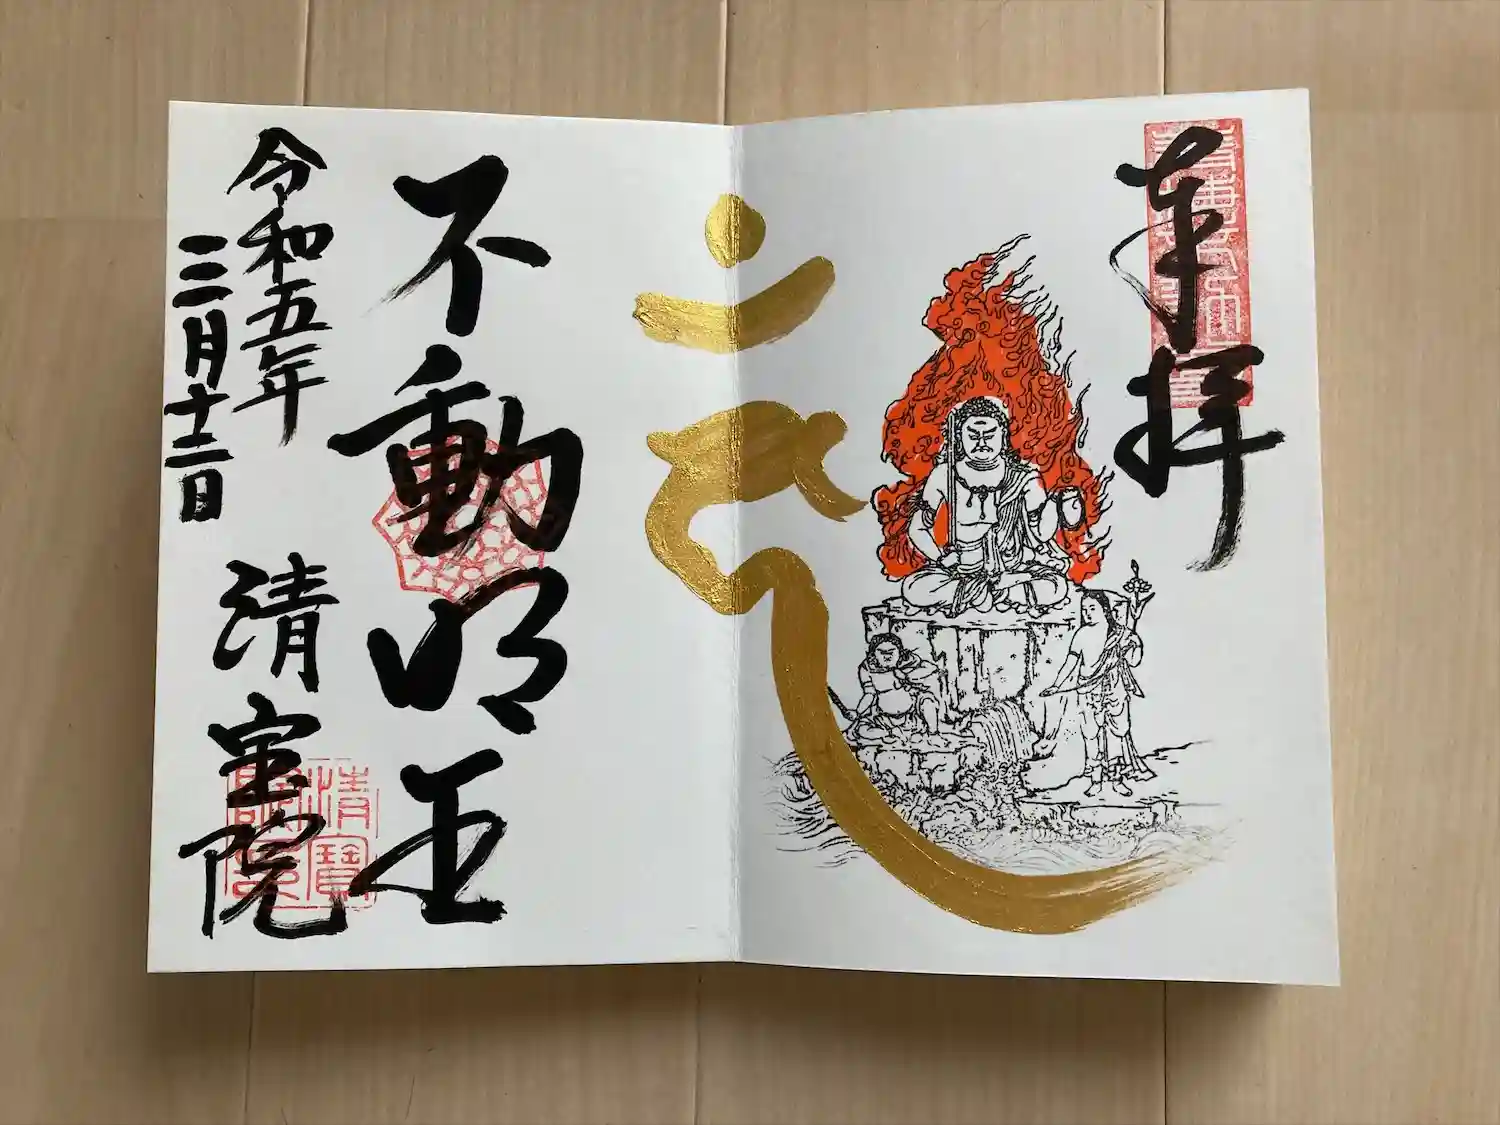 奉拝
不動明王
令和五年
三月十二日
清宝院
清寶